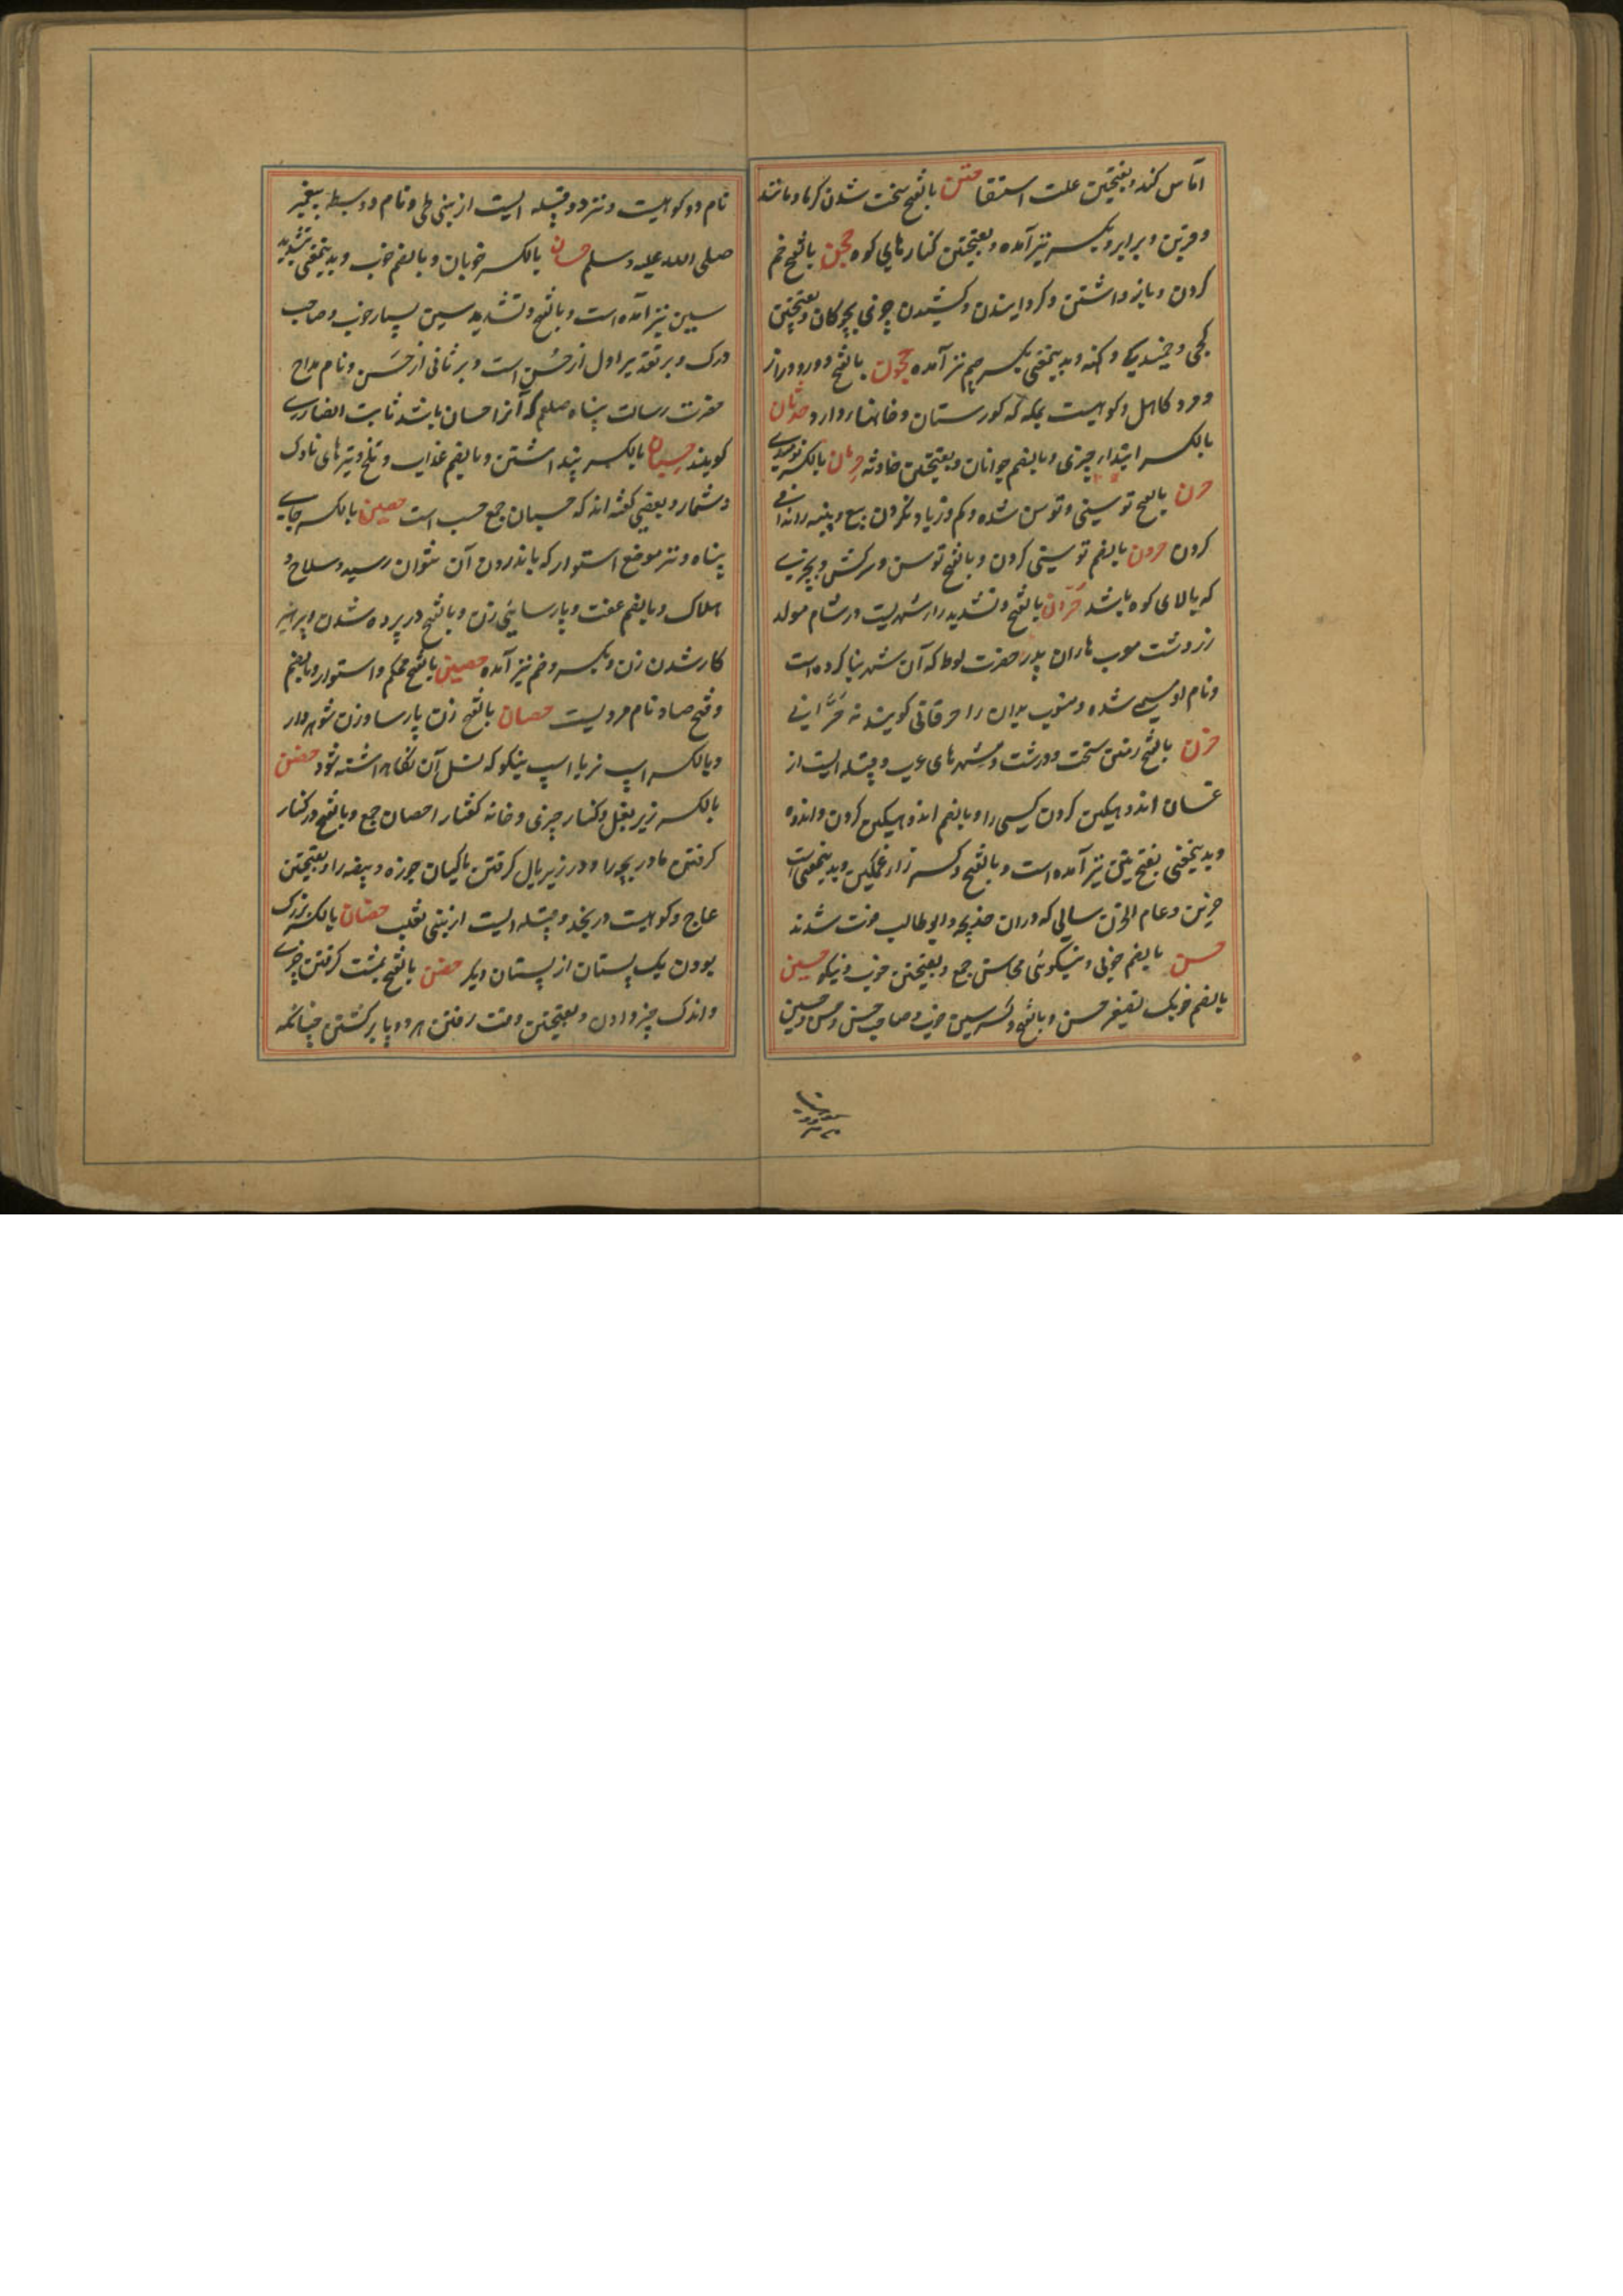 آماس کند و بفتحتین علت استسقا حتن بالفتح سخت شدن گرما و مانند
و قرین و برابر و بکسر نیز آمده و بفتحتین کنارهای کوه حجن بالفتح خم
کردن و باز داشتن و گردانیدن و کشیدن چیزی بچوکان و بفتحتین
کجی و خمیدگی و کهنه و بدینمعنی بکسر جیم نیز آمده حجون بالفتح دور و دراز
و مرد کاهل و کوهیست بمکه که کورستان و خانهها دارد حدثان
بالکسر ابتداء چیزی و بالضم جوانان و بفتحتین حادثه حرمان بالکسر نومیدی
حرن بالفتح توسنی و توسن شده و کم و زیاد نکردن بیع و پنبه را ندافی
کردن حرون بالضم توسنی کردن و بالفتح توسن و سرکش و چیزی
که بالای کوه باشد حرّان بالفتح و تشدید را شهریست در شام مولد
زردشت منسوب هاران پدر حضرت لوط که آن شهر بنا کرده است
و نام او مسمی شده و منسوب بدان را حرقانی کویند نه حرّانی
حزن بالفتح زمین سخت و درشت و شهرهای عرب و قبیله ایست از
غسان اندوهگین کردن کسی را و بالضم اندوهگین کردن و اندوه
و بدینمعنی بفتحتین نیز آمده است و بالفتح و کسر زا غمگین و بدینمعنی است
حزین و عام الحزن سالی که دران خدیجه و ابو طالب فوت شدند
حسن بالضم خوبی و نیکوئی محاسن جمع و بفتحتین خوب و نیکو حسین
بالضم خوبک تصغیر حسن و بالفتح و کسر سین خوب و صاحب حسن و حسن و حسین
نام دو کوهیست و نیز دو قبیله ایست از بنی طی و نام دو سبط پیغمبر
صلی الله علیه وسلم حسان بالکسر خوبان و بالضم خوب و بدینمعنی بتشدید
سین نیز آمده است و بالفتح و تشدید سین بسیار خوب و صاحب
درک و بر تقدیر اول از حُسن است و بر ثانی از حَسّ و نام مداح
حضرت رسالت پناه صلعم که آنرا حسان باشد ثابت انصاری
کویند حسبان بالکسر پنداشتن و بالضم عذاب و تلخ و تیرهای ناوک
و شمار و بعضی گفته اند که حسبان جمع حسب است حصن بالکسر جای
پناه و نیز موضع استوار که باندرون آن نتوان رسید و سلاح و
املاک و بالضم عفت و پارسایی زن و بالفتح در پرده شدن و پرهیز
کار شدن زن و بکسر و ضم نیز آمده حصین بالفتح محکم و استوار و بالضم
و فتح صاد نام مردیست حصان بالفتح زن پارسا و زن شوهردار
و بالکسر اسپ نر یا اسپ نیکو که نسل آن نگاهداشته شود حضن
بالکسر زیر بغل و کنار چیزی و خانه کفتار احضان جمع و بالفتح در کنار
گرفتن مادر بچه را و در زیر بال گرفتن ماکیان چوزه و بیضه را و بفتحتین
عاج و کوهیست در نجد و قبیله ایست از بنی تغلب حضان بالکسر بزرگ
بودن یک پستان از پستان دیگر حفن بالفتح بمشت گرفتن چیزی
و اندک چیز دادن و بفتحتین وقت رفتن هر دو پا برگشتن چنانکه